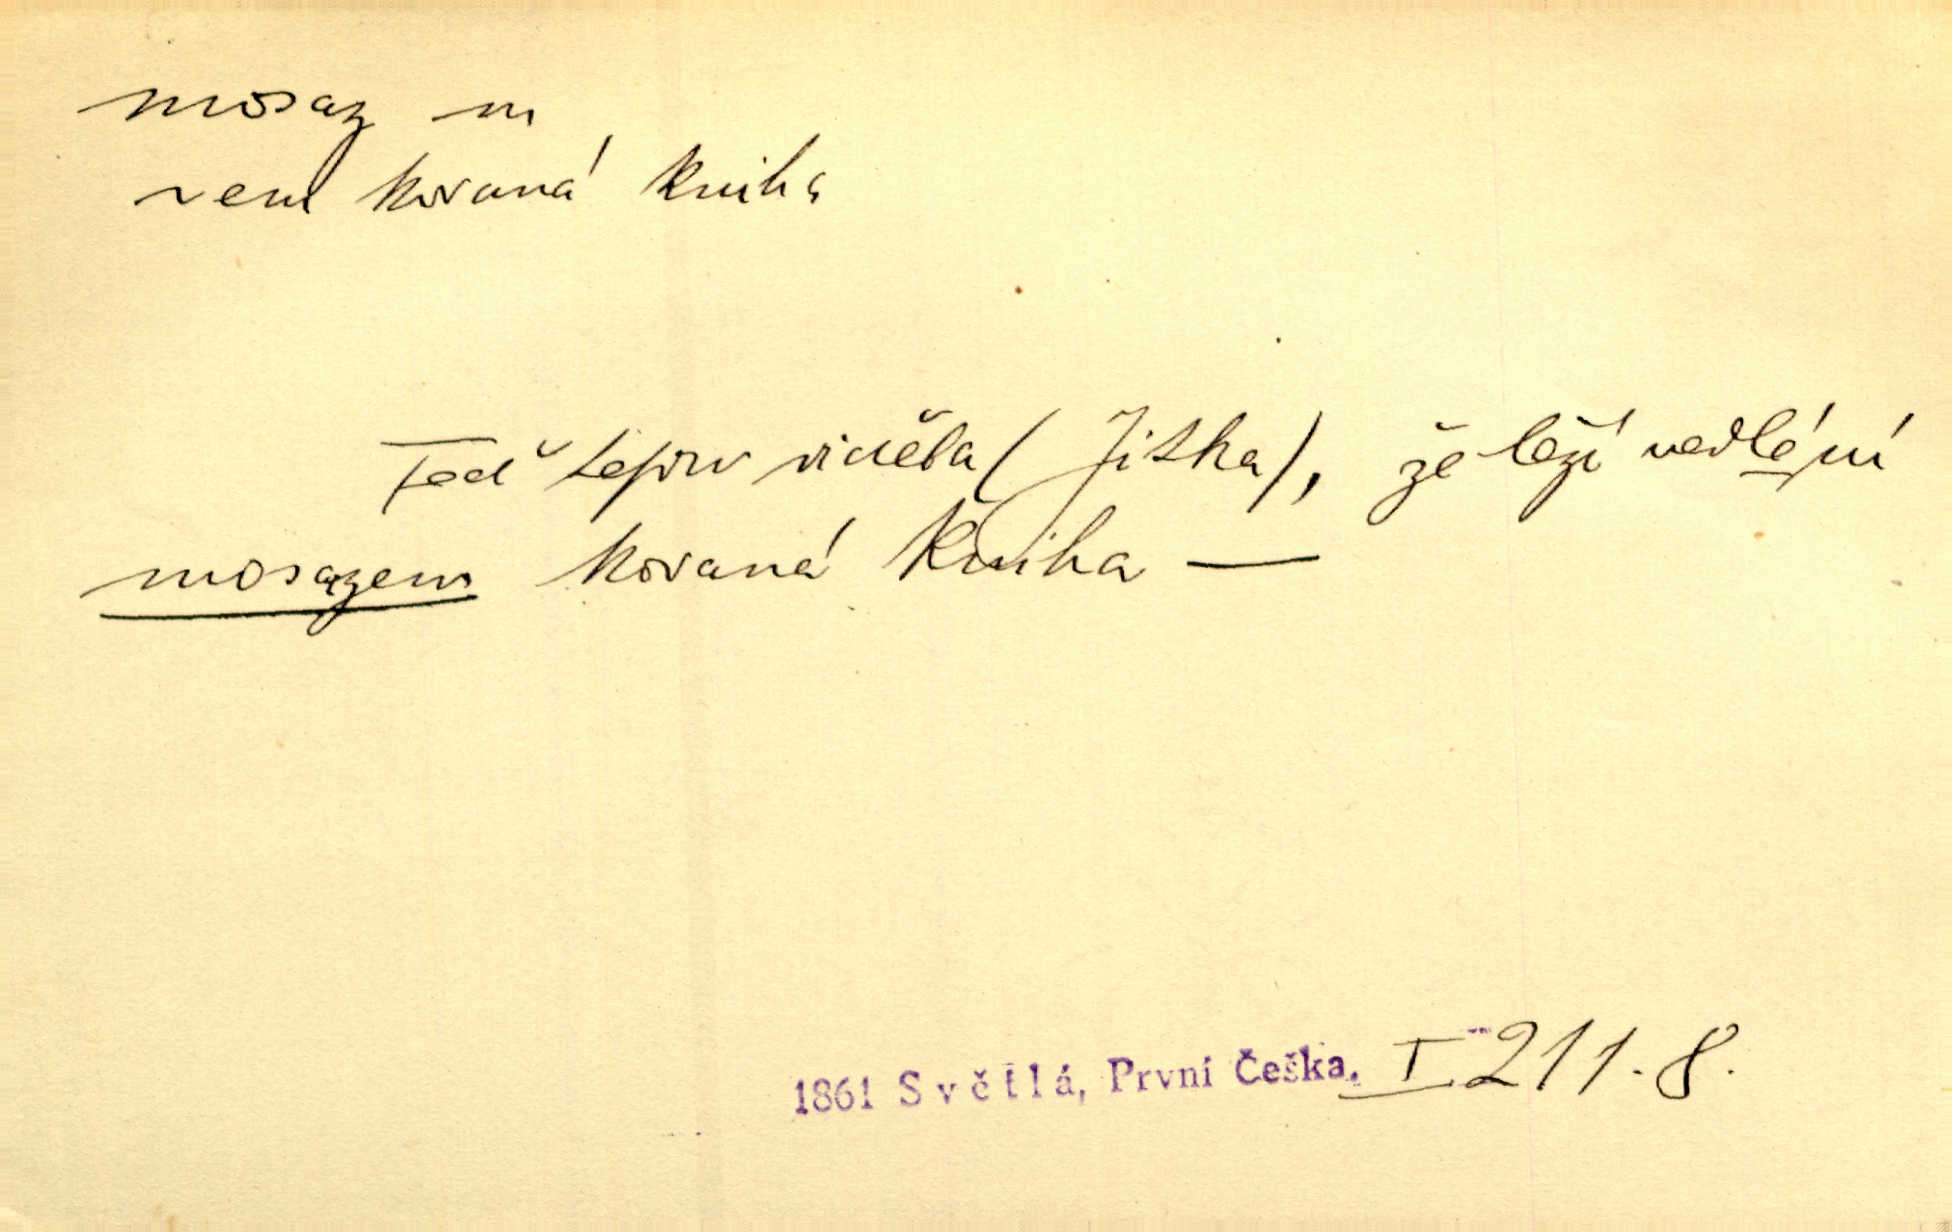 mosaz m
~em kovaná kniha
Teď teprv viděla (Jitka), že leží vedlé ní
mosazem kovaná kniha —
1861 Světlá, První Češka. I 211.8.